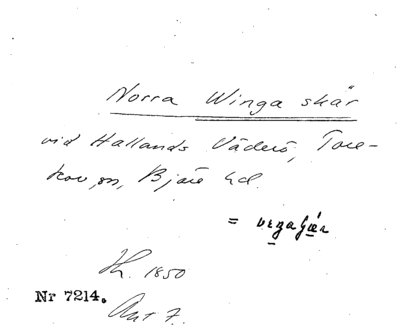 Norra Winga skär
vid Hallands Väderö, Tore-
kov sn, Bjäre hd.
=
Nr 7214.
1850